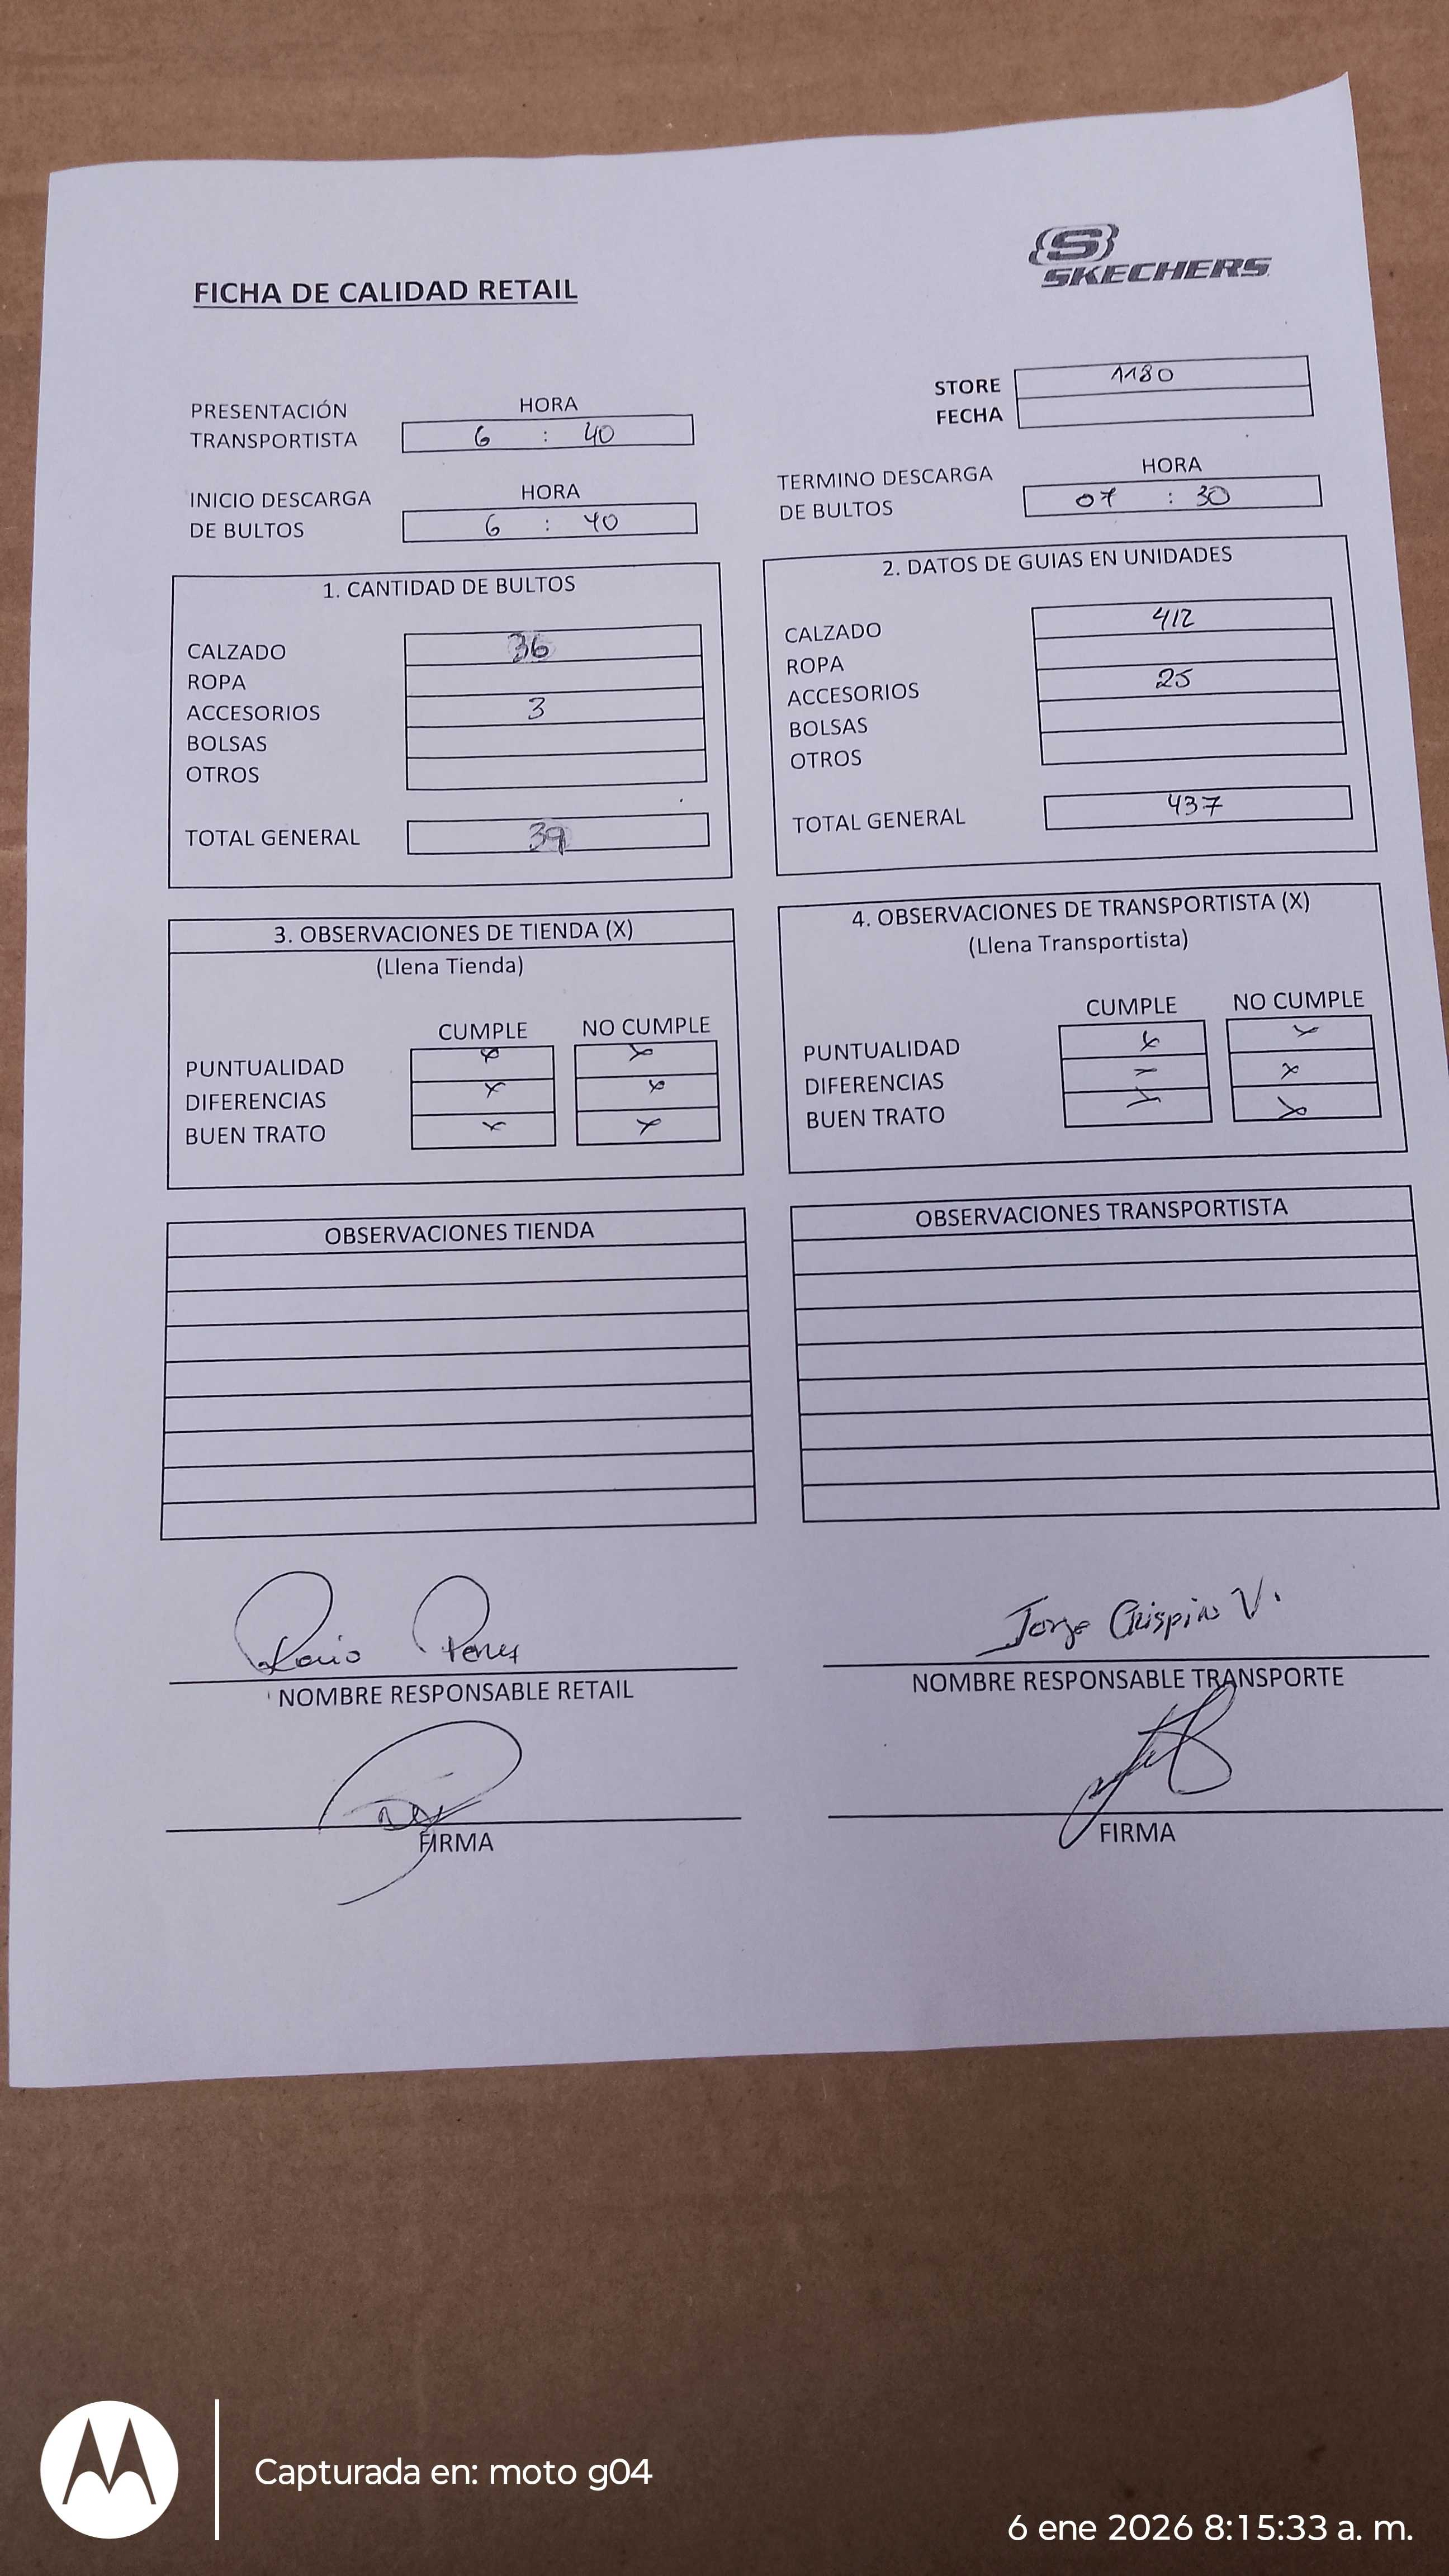 SKECHERS
FICHA DE CALIDAD RETAIL
STORE 1180
FECHA
PRESENTACIÓN TRANSPORTISTA HORA 6 : 40
INICIO DESCARGA DE BULTOS HORA 6 : 40
TERMINO DESCARGA DE BULTOS HORA 07 : 30
1. CANTIDAD DE BULTOS
CALZADO 36
ROPA
ACCESORIOS 3
BOLSAS
OTROS
TOTAL GENERAL 39
2. DATOS DE GUIAS EN UNIDADES
CALZADO 412
ROPA
ACCESORIOS 25
BOLSAS
OTROS
TOTAL GENERAL 437
3. OBSERVACIONES DE TIENDA (X)
(Llena Tienda)
CUMPLE NO CUMPLE
PUNTUALIDAD x x
DIFERENCIAS x x
BUEN TRATO x x
4. OBSERVACIONES DE TRANSPORTISTA (X)
(Llena Transportista)
CUMPLE NO CUMPLE
PUNTUALIDAD x x
DIFERENCIAS x x
BUEN TRATO x x
OBSERVACIONES TIENDA
OBSERVACIONES TRANSPORTISTA
NOMBRE RESPONSABLE RETAIL
FIRMA
Jorge Crispin V.
NOMBRE RESPONSABLE TRANSPORTE
FIRMA
Capturada en: moto g04
6 ene 2026 8:15:33 a. m.